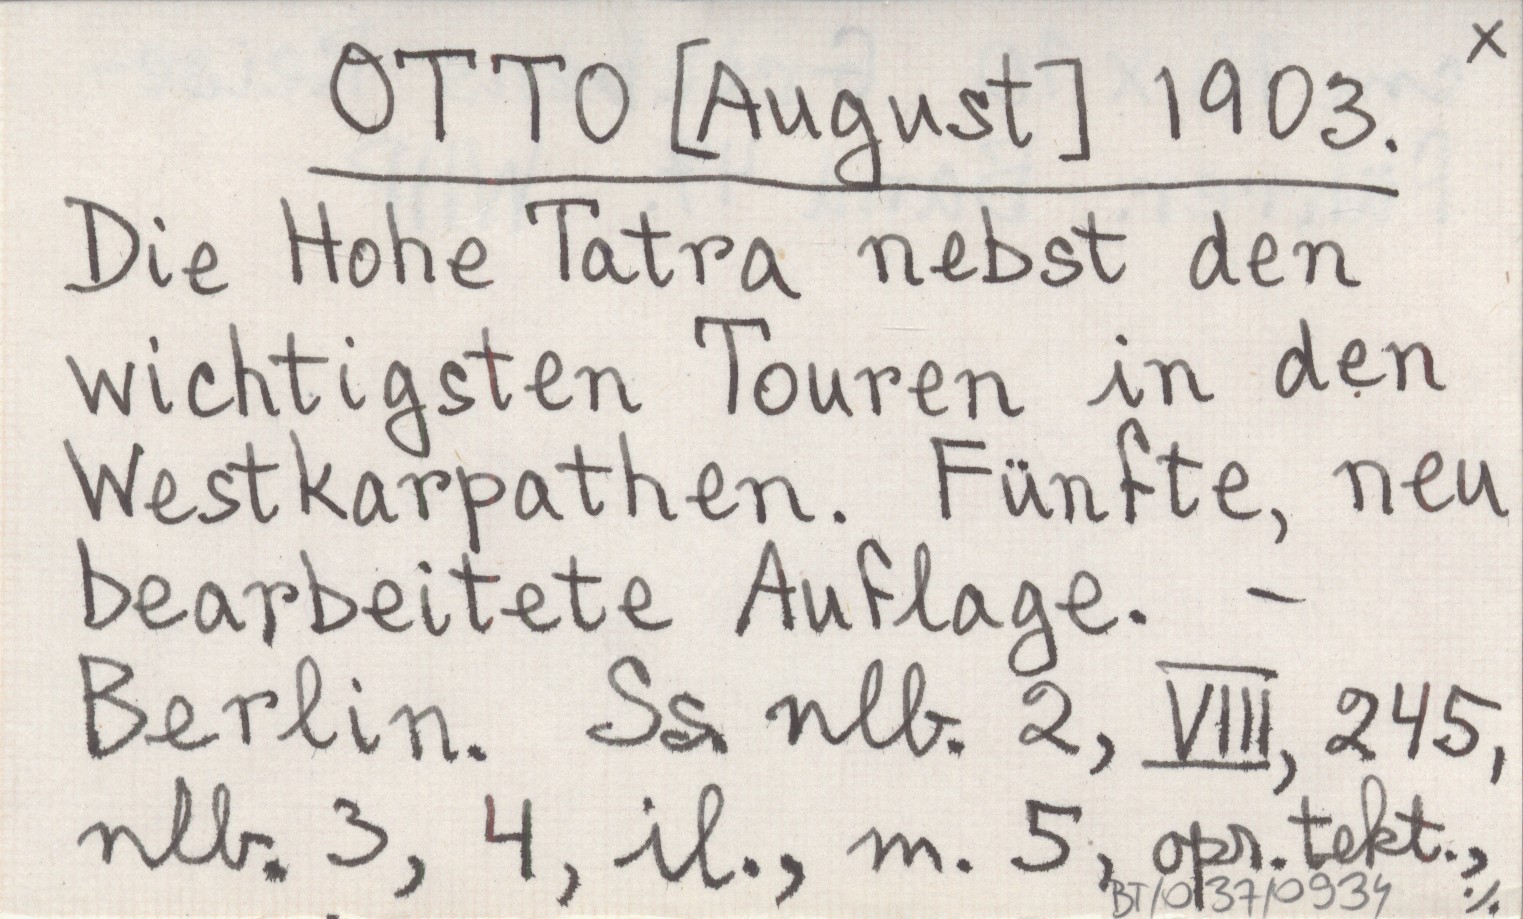 x
OTTO [August] 1903.
Die Hohe Tatra nebst den
wichtigsten Touren in den
Westkarpathen. Fünfte, neu
bearbeitete Auflage. –
Berlin. Ss nlb. 2, VIII, 245,
nlb. 3, 4, il., m. 5, opr. tekt.,
BT/0137/0934 ·/.